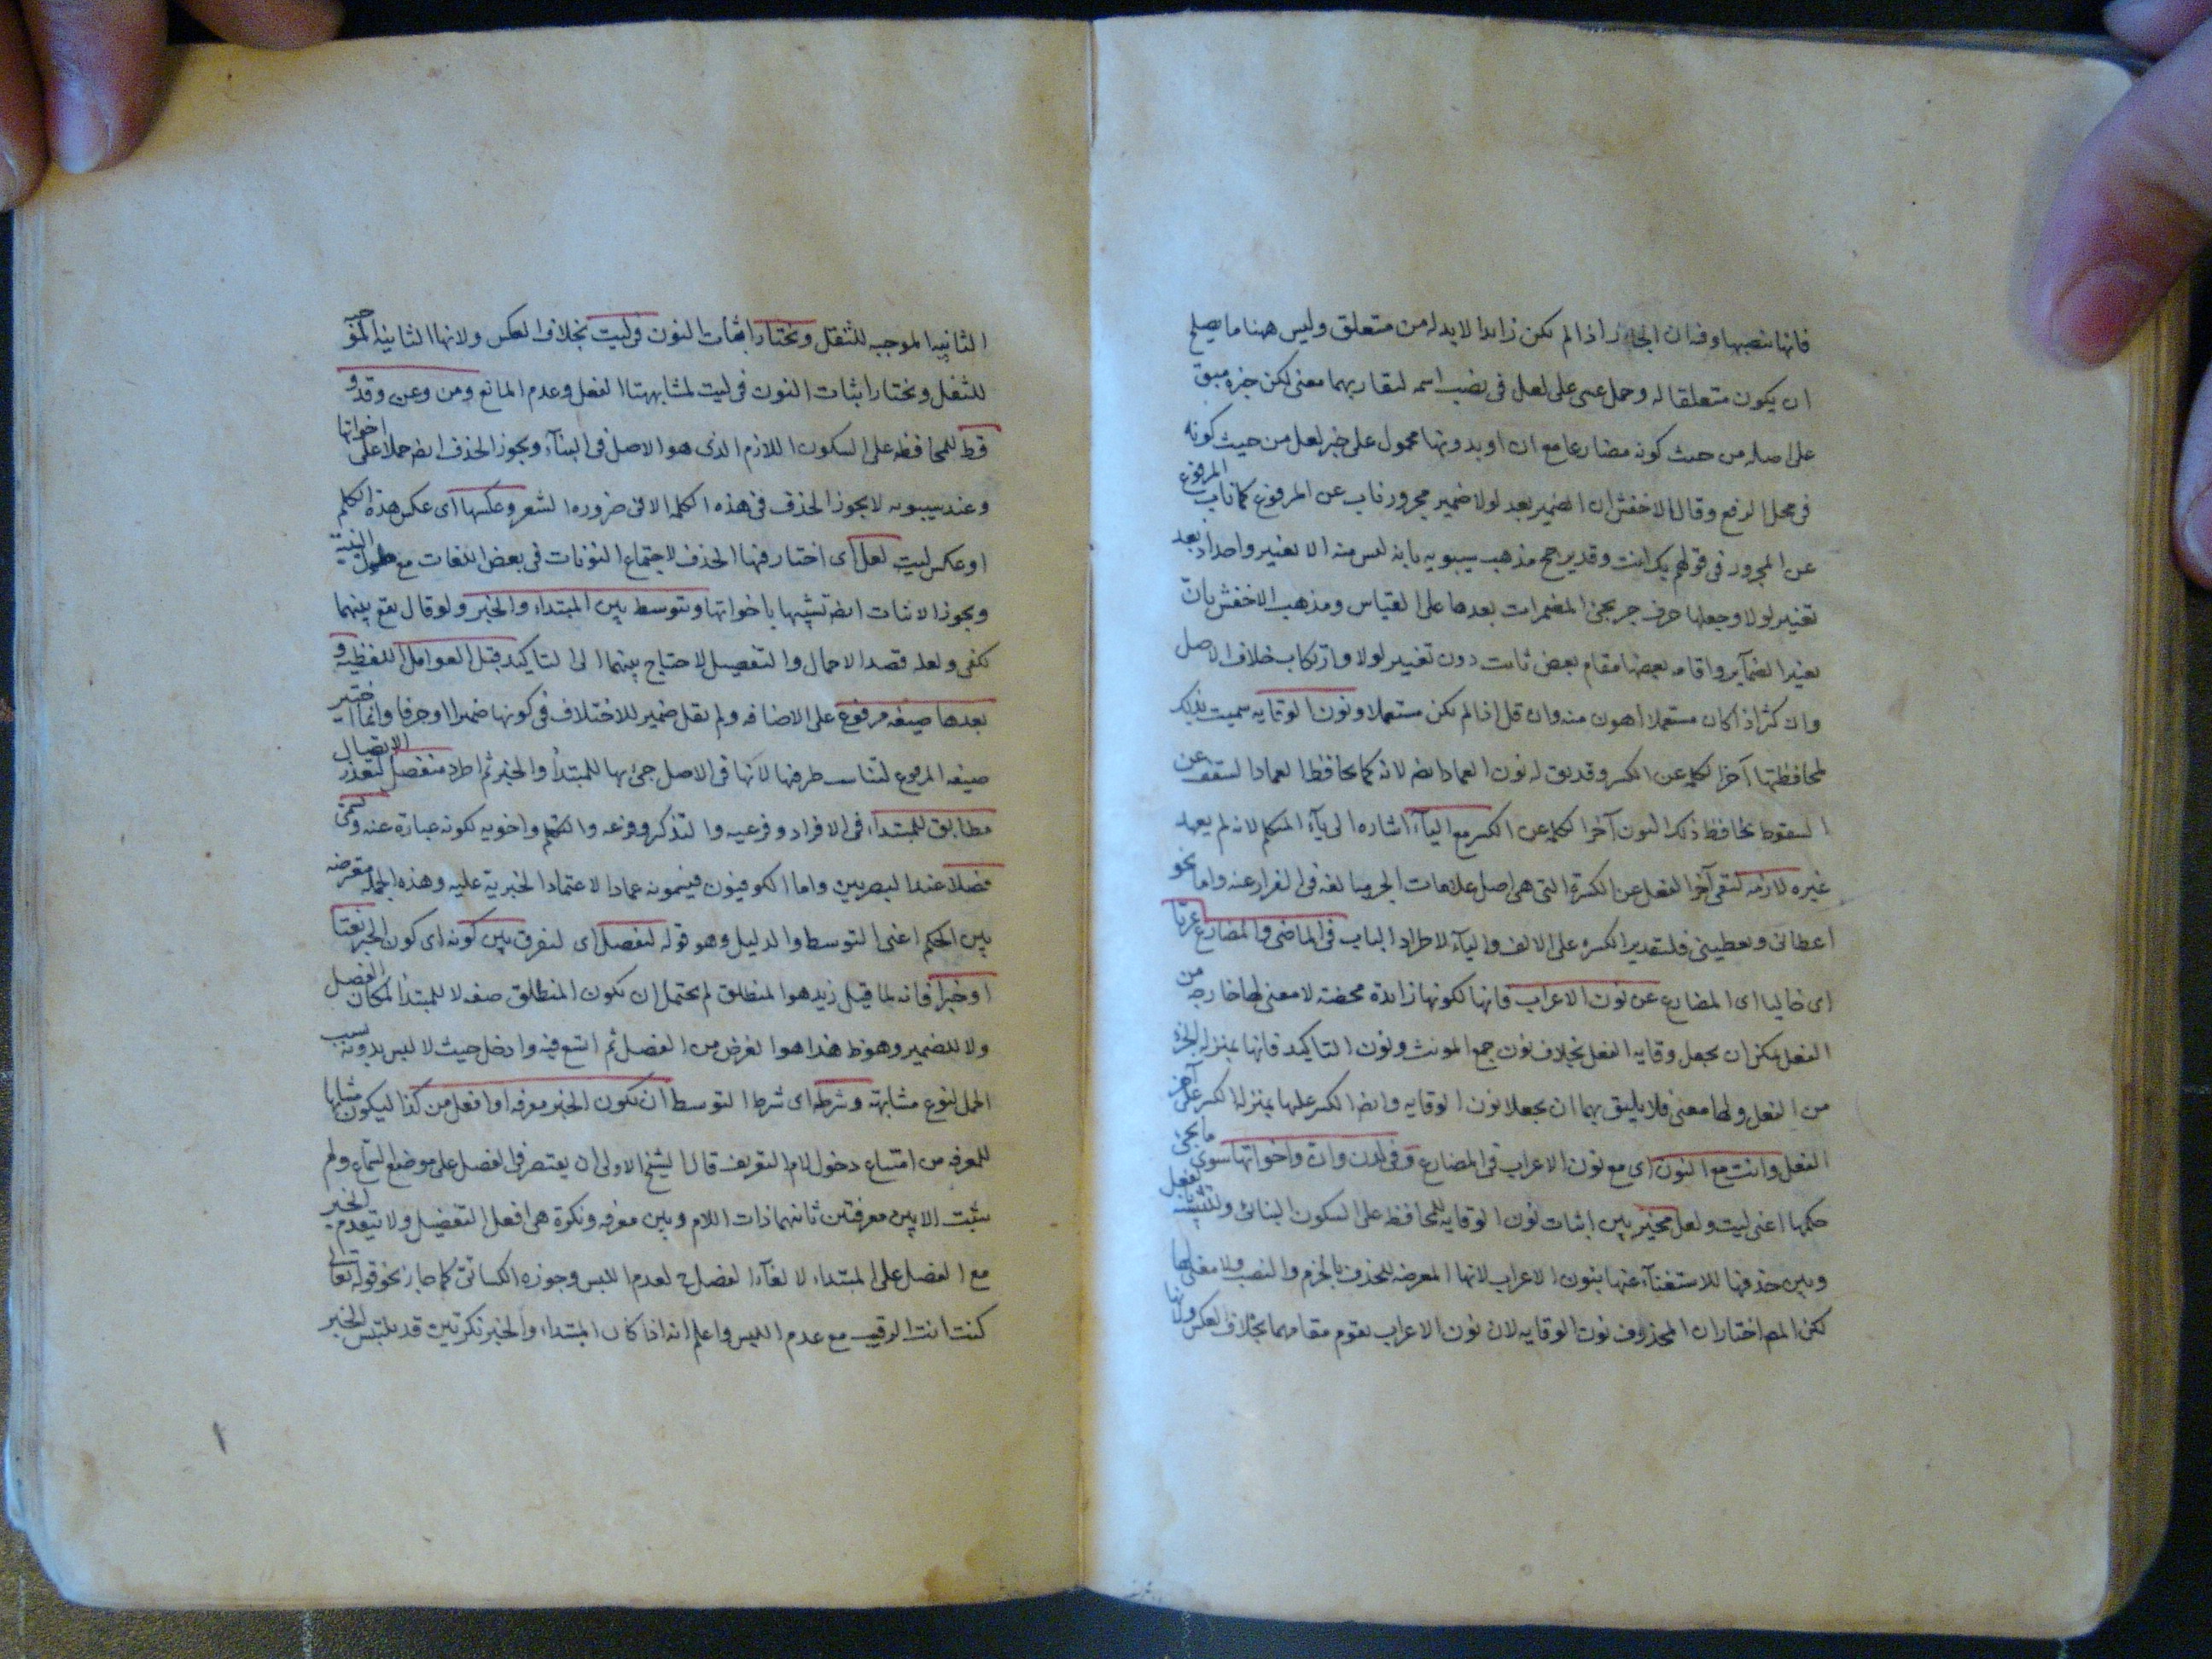 فانها تنصبها وفيه ان الجار اذا لم يكن زايدا لا بد له من متعلق وليس ههنا ما يصلح
ان يكون متعلقا له وحمل عسى على لعل فى نصب اسمه لتقاربهما معنى لكن خبره مبقى
على اصله من حيث كونه مضارعا مع ان او بدونها محمول على خبر لعل من حيث كونه
فى محل الرفع وقال الاخفش ان الضمير بعد لولا ضمير مجرور ناب عن المرفوع كما ناب المرفوع
عن المجرور فى قولهم كانت وقد يرجح مذهب سيبويه بانه ليس منه الا تغيير واحد بعد
تغيير لولا وجعلها حرف جر يجئ المضمرات بعدها على القياس ومذهب الاخفش بان
تغيير الضمآير واقامه بعضها مقام بعض ثابت دون تغيير لولا وارتكاب خلاف الاصل
وان كثر اذا كان مستعملا اهون منه وان قل اذا لم يكن مستعملا ونون الوقايه سميت بذلك
لمحافظتها آخر الكلمه عن الكسر وقد يق له نون العماد ايض لانه كما يحافظ العماد السقف عن
السقوط يحافظ ذلك النون آخر الكلمه عن الكسر مع اليآء اشاره الى يآء المتكلم لانه لم يعهد
غيره لازمه لتقى آخر الفعل عن الكسرة التى هى اصل علامات الجر مبالغه فى الفرار عنه واما نحو
اعطانى ويعطينى فلتقدير الكسره على الالف واليآء لاطراد الباب فى الماضى والمضارع عريا
اى خاليا اى المضارع عن نون الاعراب فانها لكونها زايدة محضه لا معنى لها خارجه من
الفعل يمكن ان يجعل وقايه الفعل بخلاف نون جمع المونث ونون التاكيد فانها بمنزله الجزء
من الفعل ولها معنى فلا يليق بهما ان يجعلا نون الوقايه وايض الكسر عليها بمنزله الكسر على آخر
الفعل وانت مع النون اى مع نون الاعراب فى المضارع وفى لدن وان واخواتها سوى ما يجئ
حكمها اعنى ليت ولعل مخير بين اثبات نون الوقايه للمحافظه على السكون البنائى
وبين حذفها للاستغنآء عنها بنون الاعراب لانها المعرضه للحذف بالجزم والنصب ولا معنى لها
لكن المص اختار ان المحذوف نون الوقايه لان نون الاعراب تقوم مقامهما بخلاف العكس ولانها
الثانيه الموجبه للثقل ويختار اثبات النون فى ليت بخلاف العكس ولانها الثانية الموجبه
للثقل ويختار اثبات النون فى ليت لمشابهتها الفعل وعدم المانع ومن وعن وقد و
قط للمحافظه على السكون اللازم الذى هو الاصل فى البنآء ويجوز الحذف ايض حملا على اخواتها
وعند سيبويه لا يجوز الحذف فى هذه الكلمه الا فى ضروره الشعر وعكسها اى عكس هذه الكلم
او عكس ليت لعل اى اختار فيها الحذف لاجتماع النونات فى بعض اللغات مع طول البنية
ويجوز الاثبات ايض تشبيها باخواتها ويتوسط بين المبتداء والخبر ولو قال يقع بينهما
لكفى ولعله قصد الاجمال والتفصيل لاحتياج بينهما الى التاكيد قبل العوامل اللفظيه و
بعدها صيغه مرفوع على الاضافه ولم يقل ضمير للاختلاف فى كونها ضميرا او حرفا وانما اختير
صيغه المرفوع لتناسب طرفيها لانها فى الاصل جئ بها للمبتدأ والخبر ثم اطرد منفصل لتعذر الاتصال
مطابق للمبتداء فى الافراد وفرعيه والتذكير وفرعه والتكلم واخويه لكونه عبارة عنه وتسمى
فصلا عند البصريين واما الكوفيون فيسمونه عمادا لاعتماد الخبرية عليه وهذه الجمله معترضه
بين الحكم اعنى التوسط والدليل وهو قوله ليفصل اى ليفرق بين كونه اى كون الخبر نعتا
او خبرا فانه لما قيل زيد هو المنطلق لم يحتمل ان يكون المنطلق صفه لا للمبتدأ لمكان الفصل
ولا للضمير وهو ظ هذا هو الغرض من الفصل ثم اتسع فيه وادخل حيث لا لبس بدونه بسبب
الحمل لنوع مشابهته وشرطه اى شرط التوسط ان يكون الخبر معرفه او افعل من كذا ليكون مشابها
للمعرفه من امتناع دخول لام التعريف قال الشيخ الاولى ان يقتصر فى الفصل على موضع السماع ولم
يثبت الا بين معرفتين ثانيهما ذات اللام وبين معرفه ونكرة هى افعل التفضيل ولا يتقدم الخبر
مع الفصل على المبتداء لالغآء الفصل ح لعدم اللبس وجوزه الكسائى كما جاز نحو قوله تعالى
كنت انت الرقيب مع عدم اللبس واعلم انه اذا كان المبتداء والخبر نكرتين قد يلتبس الخبر